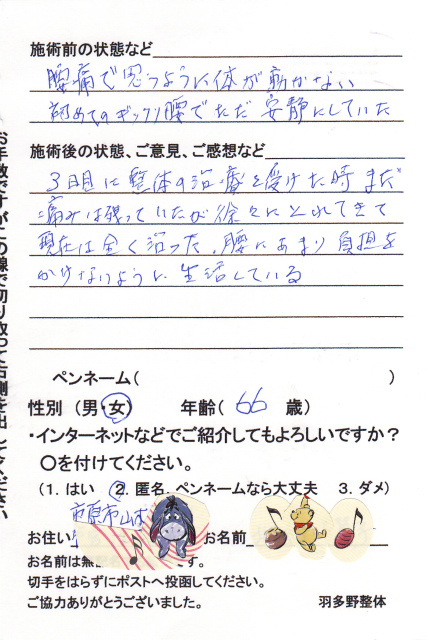 施術前の状態など
腰痛で思うように体が動かない
初めてのギックリ腰でただ安静にしていた
施術後の状態、ご意見、ご感想など
3日目に整体の治療を受けた時まだ
痛みは残っていたが徐々にとれてきて
現在は全く治った、腰にあまり負担を
かけないように生活している
ペンネーム( )
性別 (男・女) 年齢( 66 歳)
・インターネットなどでご紹介してもよろしいですか?
〇を付けてください。
(1. はい 2. 匿名、ペンネームなら大丈夫 3. ダメ)
市原市山
お住い お名前
お名前は無 す。
切手をはらずにポストへ投函してください。
ご協力ありがとうございました。 羽多野整体
お手数ですがこの線で切り取って右側を出してください